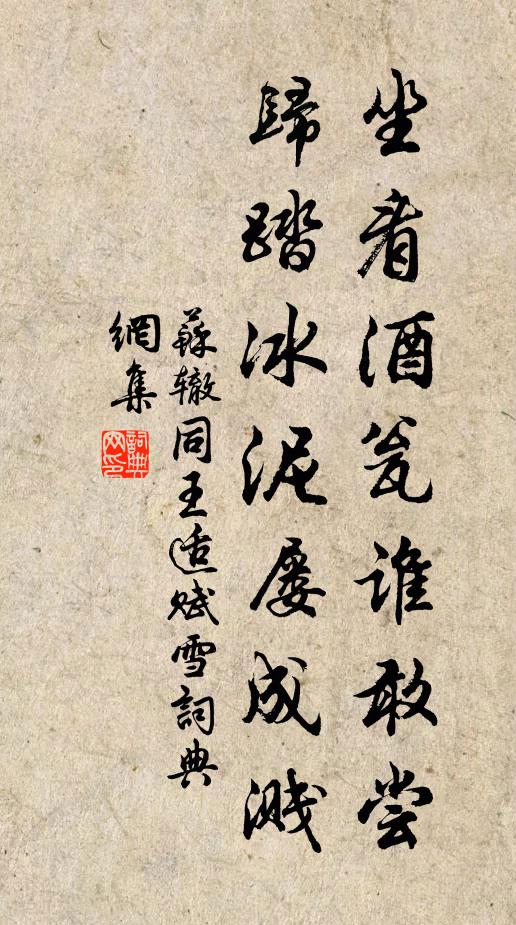 坐看酒瓮谁敢尝
歸踏冰泥屡成溅
蘇辙同王适赋雪詞典
網集
詞典网印